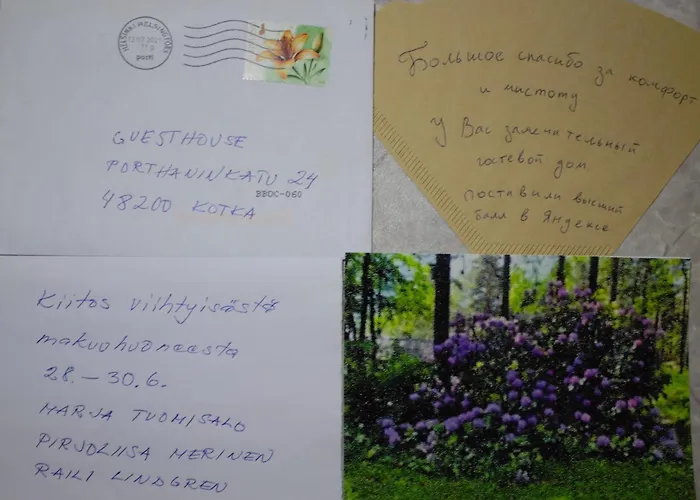 HELSINKI HELSINGFORS
posti
GUESTHOUSE
PORTHANINKATU 24
BBDC-060
48200 KOTKA
Большое спасибо за комфорт
и чистоту
У Вас замечательный
гостевой дом
поставили высший
балл в Яндексе
Kiitos viihtyisästä
makuuhuoneesta
28.–30.6.
MARJA TUOMISALO
PIRJOLIISA MERINEN
RAILI LINDGREN